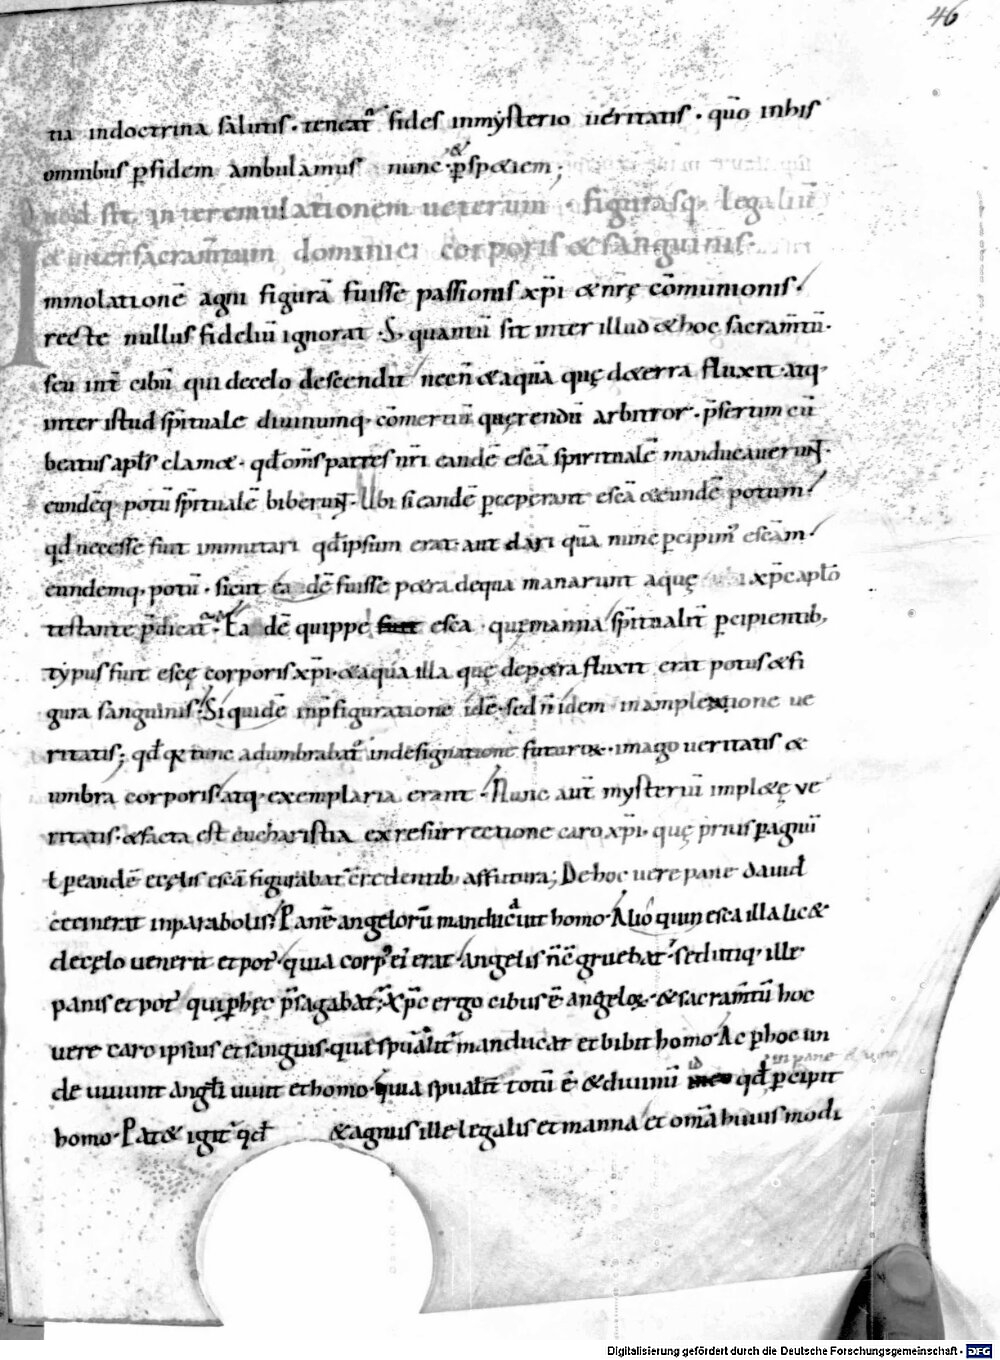 46
tia indoctrina salutis · teneat᷒ fides inmẏsterio ueritatis · quō inhis
omnibus ꝑfidem ambulamus nunc · & ꝑspeciem ;
Quod sit interemulationem ueterum · figurasq· legaliū
& inter sacram̄tum dominici corporis & sanguinis·
Immolationē agni figurā fuisse passionis xp̄i &nr̄ę cōmunionis ·
recte nullus fideliū ignorat · S; quantū sit inter illud &hoc sacram̄tū·
seu int̄ cibū qui decelo descendit necn̄ &aquā quę d&erra fluxit · atq·
inter istud sp̄ituale diuinumq· cōmertiū quęrendū arbitror · p̄sertim cū
beatus apl̄s clam& · qd̄ om̄s patres nr̄i eandē escā spiritualē manducauerunt·
eundēq· potū sp̄itualē biberunt · Ubi si eandē ꝑceperant escā &eundē potum ·
qd̄ necesse fuit immutari qd̄ ipsum erat · aut dari quā nunc ꝑcipim᷒ escam ·
eundemq· potū · sicut ea dē fuisse p&ra dequa manarunt aquę xp̄c aplō
testante p̄dicat᷒ · Ea dē quippe esca · quę manna sp̄italit̄ ꝑcipientib;
tẏpus fuit escę corporis xp̄i · &aqua illa quę dep&ra fluxit erat potus & fi
gura sanguinis · Si quidē inp̄figuratione idē · sed n̄ idem inampletione ue
ritatis ; qd̄ tunc adumbrabat᷒ indesignatione futuroꝝ · imago ueritatis &
umbra corporis atq· exemplaria erant · Nunc aut̄ mysteriū impl&ę ve
ritatis · &facta est eucharistia exresurrectione caro xp̄i · quę prius ꝑ agnū
ł ꝑ eandē ecęlis escā figurabat᷒ credentib; affutura ; De hoc uere pane dauid
cecinerat inparabolis · Panē angelorū manducauit homo · Alioquin esca illa lic&
decęlo uenerit et pot᷒ · quia corp᷒ei erat · angelis n̄ c̄gruebat · sed utiq· ille
panis et pot᷒ qui ꝑ hęc p̄sagabat᷒ · Xp̄c ergo cibus ē angeloꝝ · &sacram̄tū hoc
uere caro ipsius et sanguis · quā spūalit᷒ manducat et bibit homo · Ac ꝑhoc un
de uiuunt angl̄i uiuit et homo · quia spualit̄ totū ē · &diuinū id qd̄ ꝑcipit
homo · Pat& igit᷒ qd̄ &agnus ille legalis et manna et om̄a huiusmodi
Digitalisierung gefördert durch die Deutsche Forschungsgemeinschaft · DFG